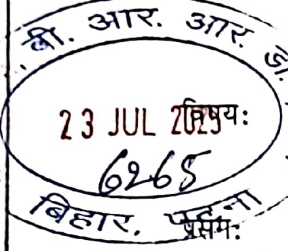 बी. आर. आर. डी.
23 JUL 2025 विषय:
6265
बिहार, पटना
प्रसंग: